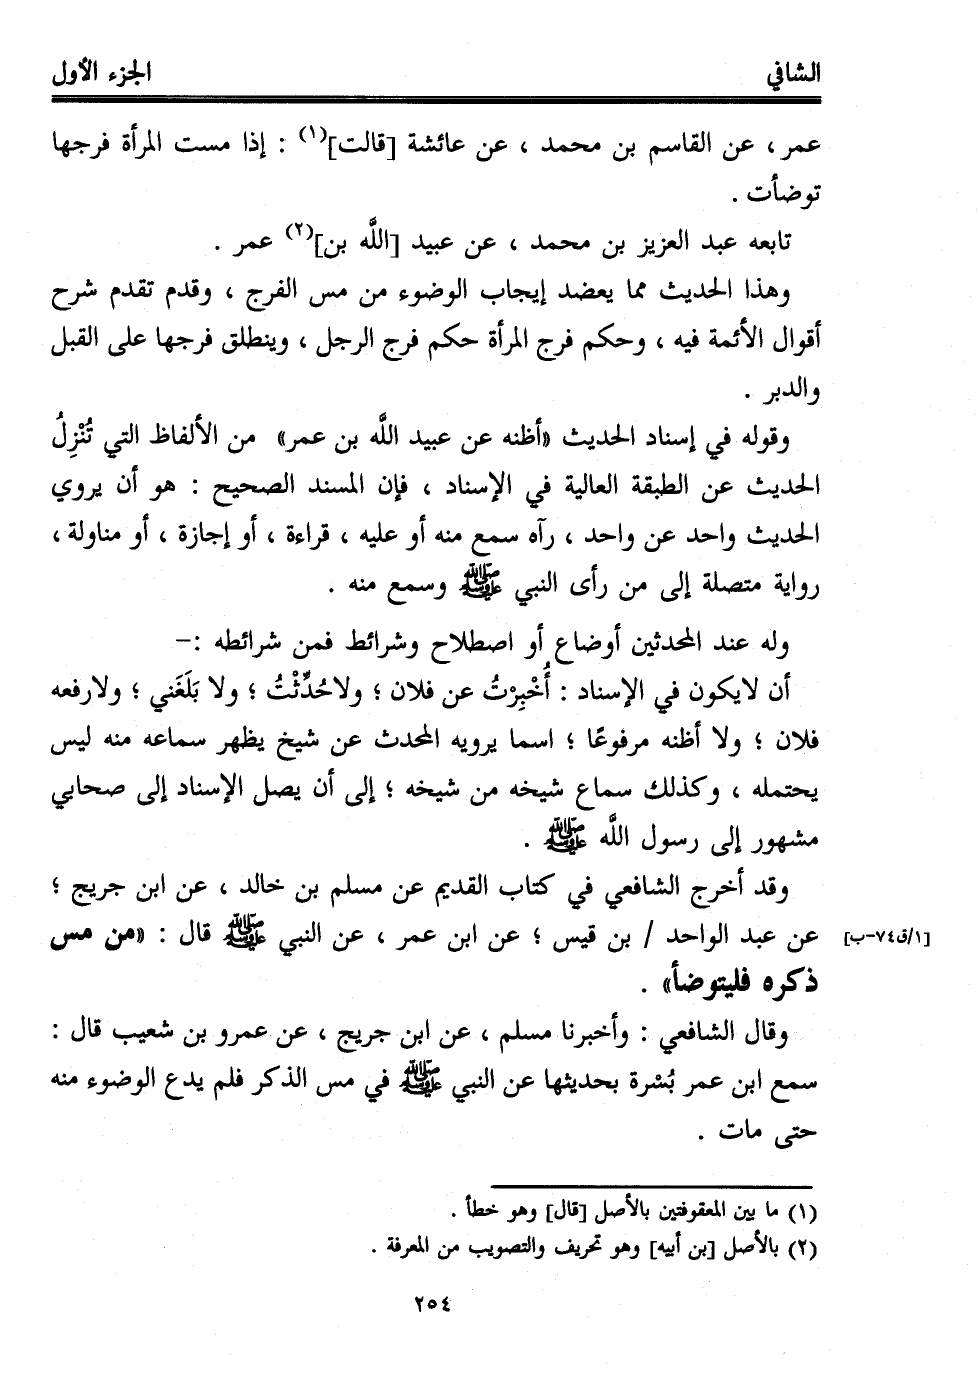 الشافي الجزء الأول
عمر ، عن القاسم بن محمد ، عن عائشة [قالت](١) : إذا مست المرأة فرجها
توضأت .
تابعه عبد العزيز بن محمد ، عن عبيد [اللَّه بن](٢) عمر .
وهذا الحديث مما يعضد إيجاب الوضوء من مس الفرج ، وقدم تقدم شرح
أقوال الأئمة فيه ، وحكم فرج المرأة حكم فرج الرجل ، وينطلق فرجها على القبل
والدبر .
وقوله في إسناد الحديث «أظنه عن عبيد اللَّه بن عمر» من الألفاظ التي تُنْزِلُ
الحديث عن الطبقة العالية في الإسناد ، فإن المسند الصحيح : هو أن يروي
الحديث واحد عن واحد ، رآه سمع منه أو عليه ، قراءة ، أو إجازة ، أو مناولة ،
رواية متصلة إلى من رأى النبي ﷺ وسمع منه .
وله عند المحدثين أوضاع أو اصطلاح وشرائط فمن شرائطه :-
أن لايكون في الإسناد : أُخْبِرْتُ عن فلان ؛ ولاحُدِّثْتُ ؛ ولا بَلَغَني ؛ ولارفعه
فلان ؛ ولا أظنه مرفوعًا ؛ اسما يرويه المحدث عن شيخ يظهر سماعه منه ليس
يحتمله ، وكذلك سماع شيخه من شيخه ؛ إلى أن يصل الإسناد إلى صحابي
مشهور إلى رسول اللَّه ﷺ .
وقد أخرج الشافعي في كتاب القديم عن مسلم بن خالد ، عن ابن جريج ؛
عن عبد الواحد / بن قيس ؛ عن ابن عمر ، عن النبي ﷺ قال : «من مس [١/ق٧٤-ب]
ذكره فليتوضأ» .
وقال الشافعي : وأخبرنا مسلم ، عن ابن جريج ، عن عمرو بن شعيب قال :
سمع ابن عمر بُسْرة بحديثها عن النبي ﷺ في مس الذكر فلم يدع الوضوء منه
حتى مات .
(١) ما بين المعقوفتين بالأصل [قال] وهو خطأ .
(٢) بالأصل [بن أبيه] وهو تحريف والتصويب من المعرفة .
٢٥٤